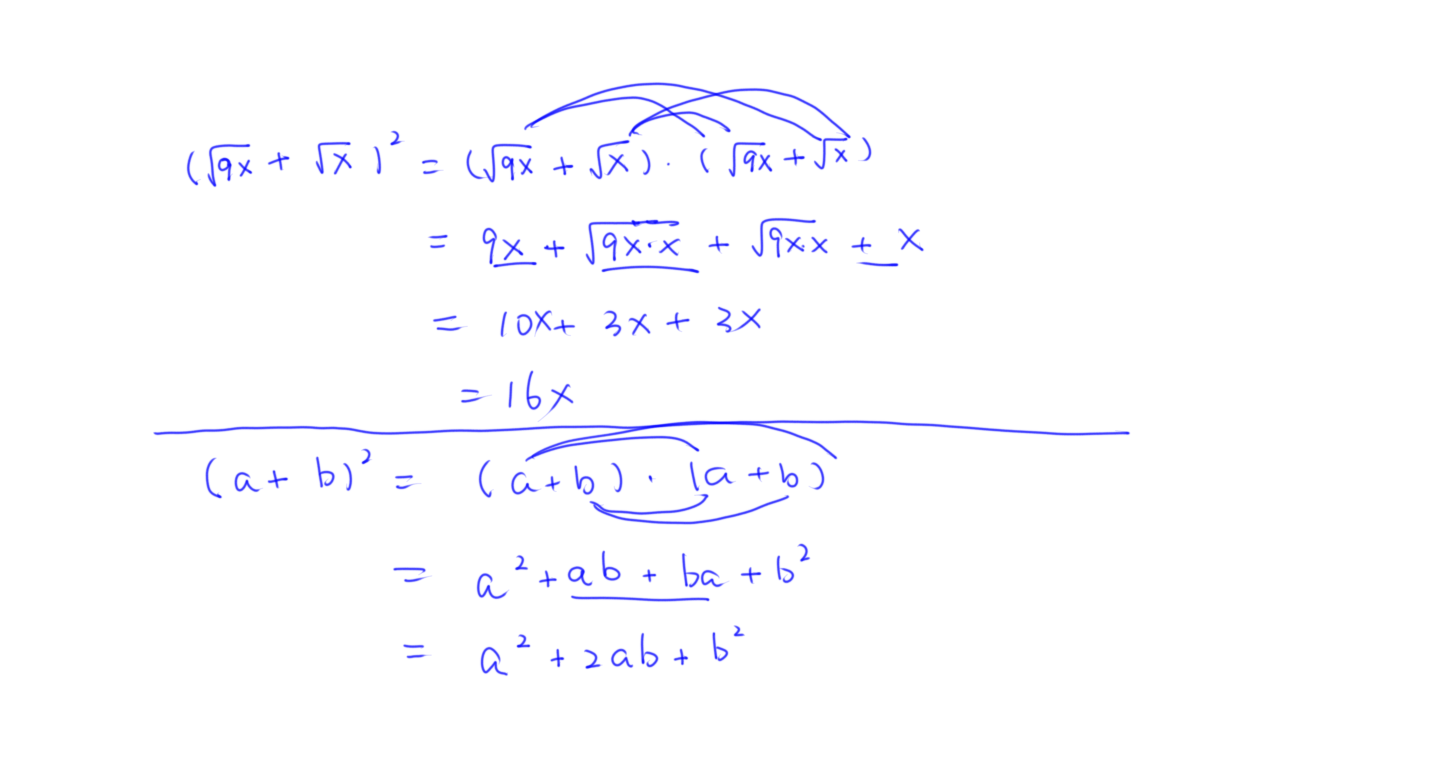 (√9x + √x)² = (√9x + √x) · (√9x + √x)
= 9x + √9x·x + √9xx + x
= 10x + 3x + 3x
= 16x
(a + b)² = (a + b) · (a + b)
= a² + ab + ba + b²
= a² + 2ab + b²